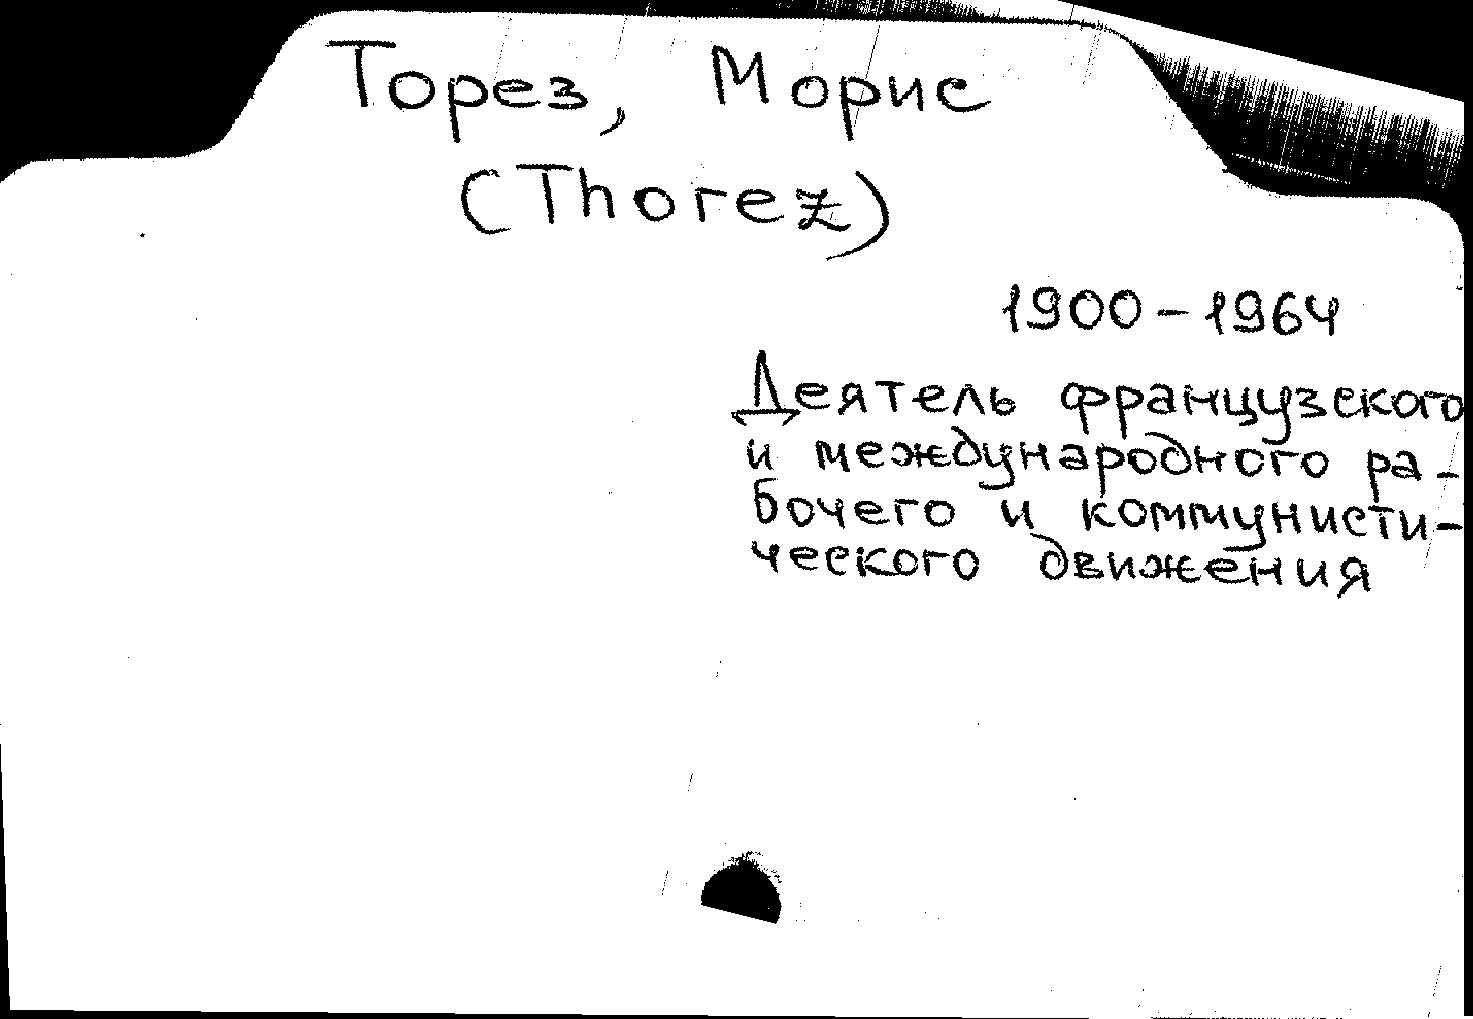 Торез, Морис
(Thorez)
1900-1964
Деятель французского
и международного ра-
бочего и коммунисти-
ческого движения